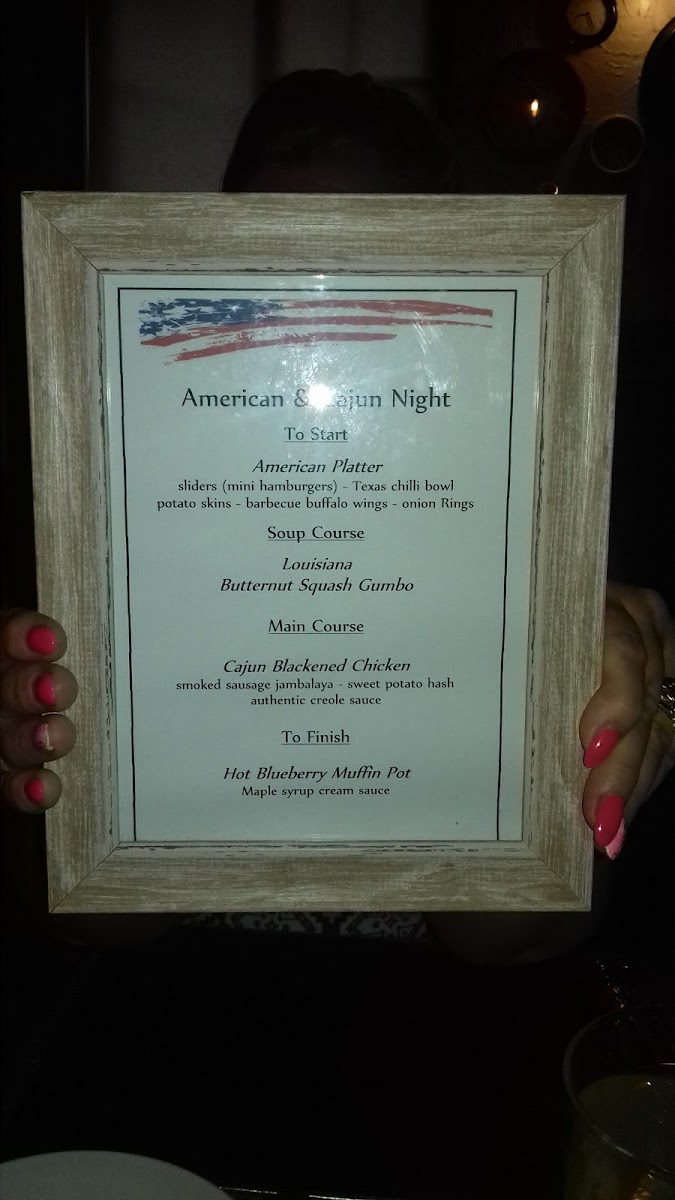 American & Cajun Night
To Start
American Platter
sliders (mini hamburgers) - Texas chilli bowl
potato skins - barbecue buffalo wings - onion Rings
Soup Course
Louisiana
Butternut Squash Gumbo
Main Course
Cajun Blackened Chicken
smoked sausage jambalaya - sweet potato hash
authentic creole sauce
To Finish
Hot Blueberry Muffin Pot
Maple syrup cream sauce